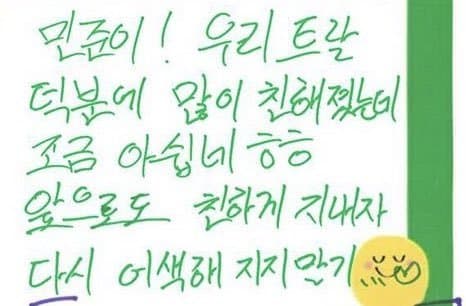 민준이! 우리 트랄
덕분에 많이 친해졌는데
조금 아쉽네 ㅎㅎ
앞으로도 친하게 지내자
다시 어색해 지지말기